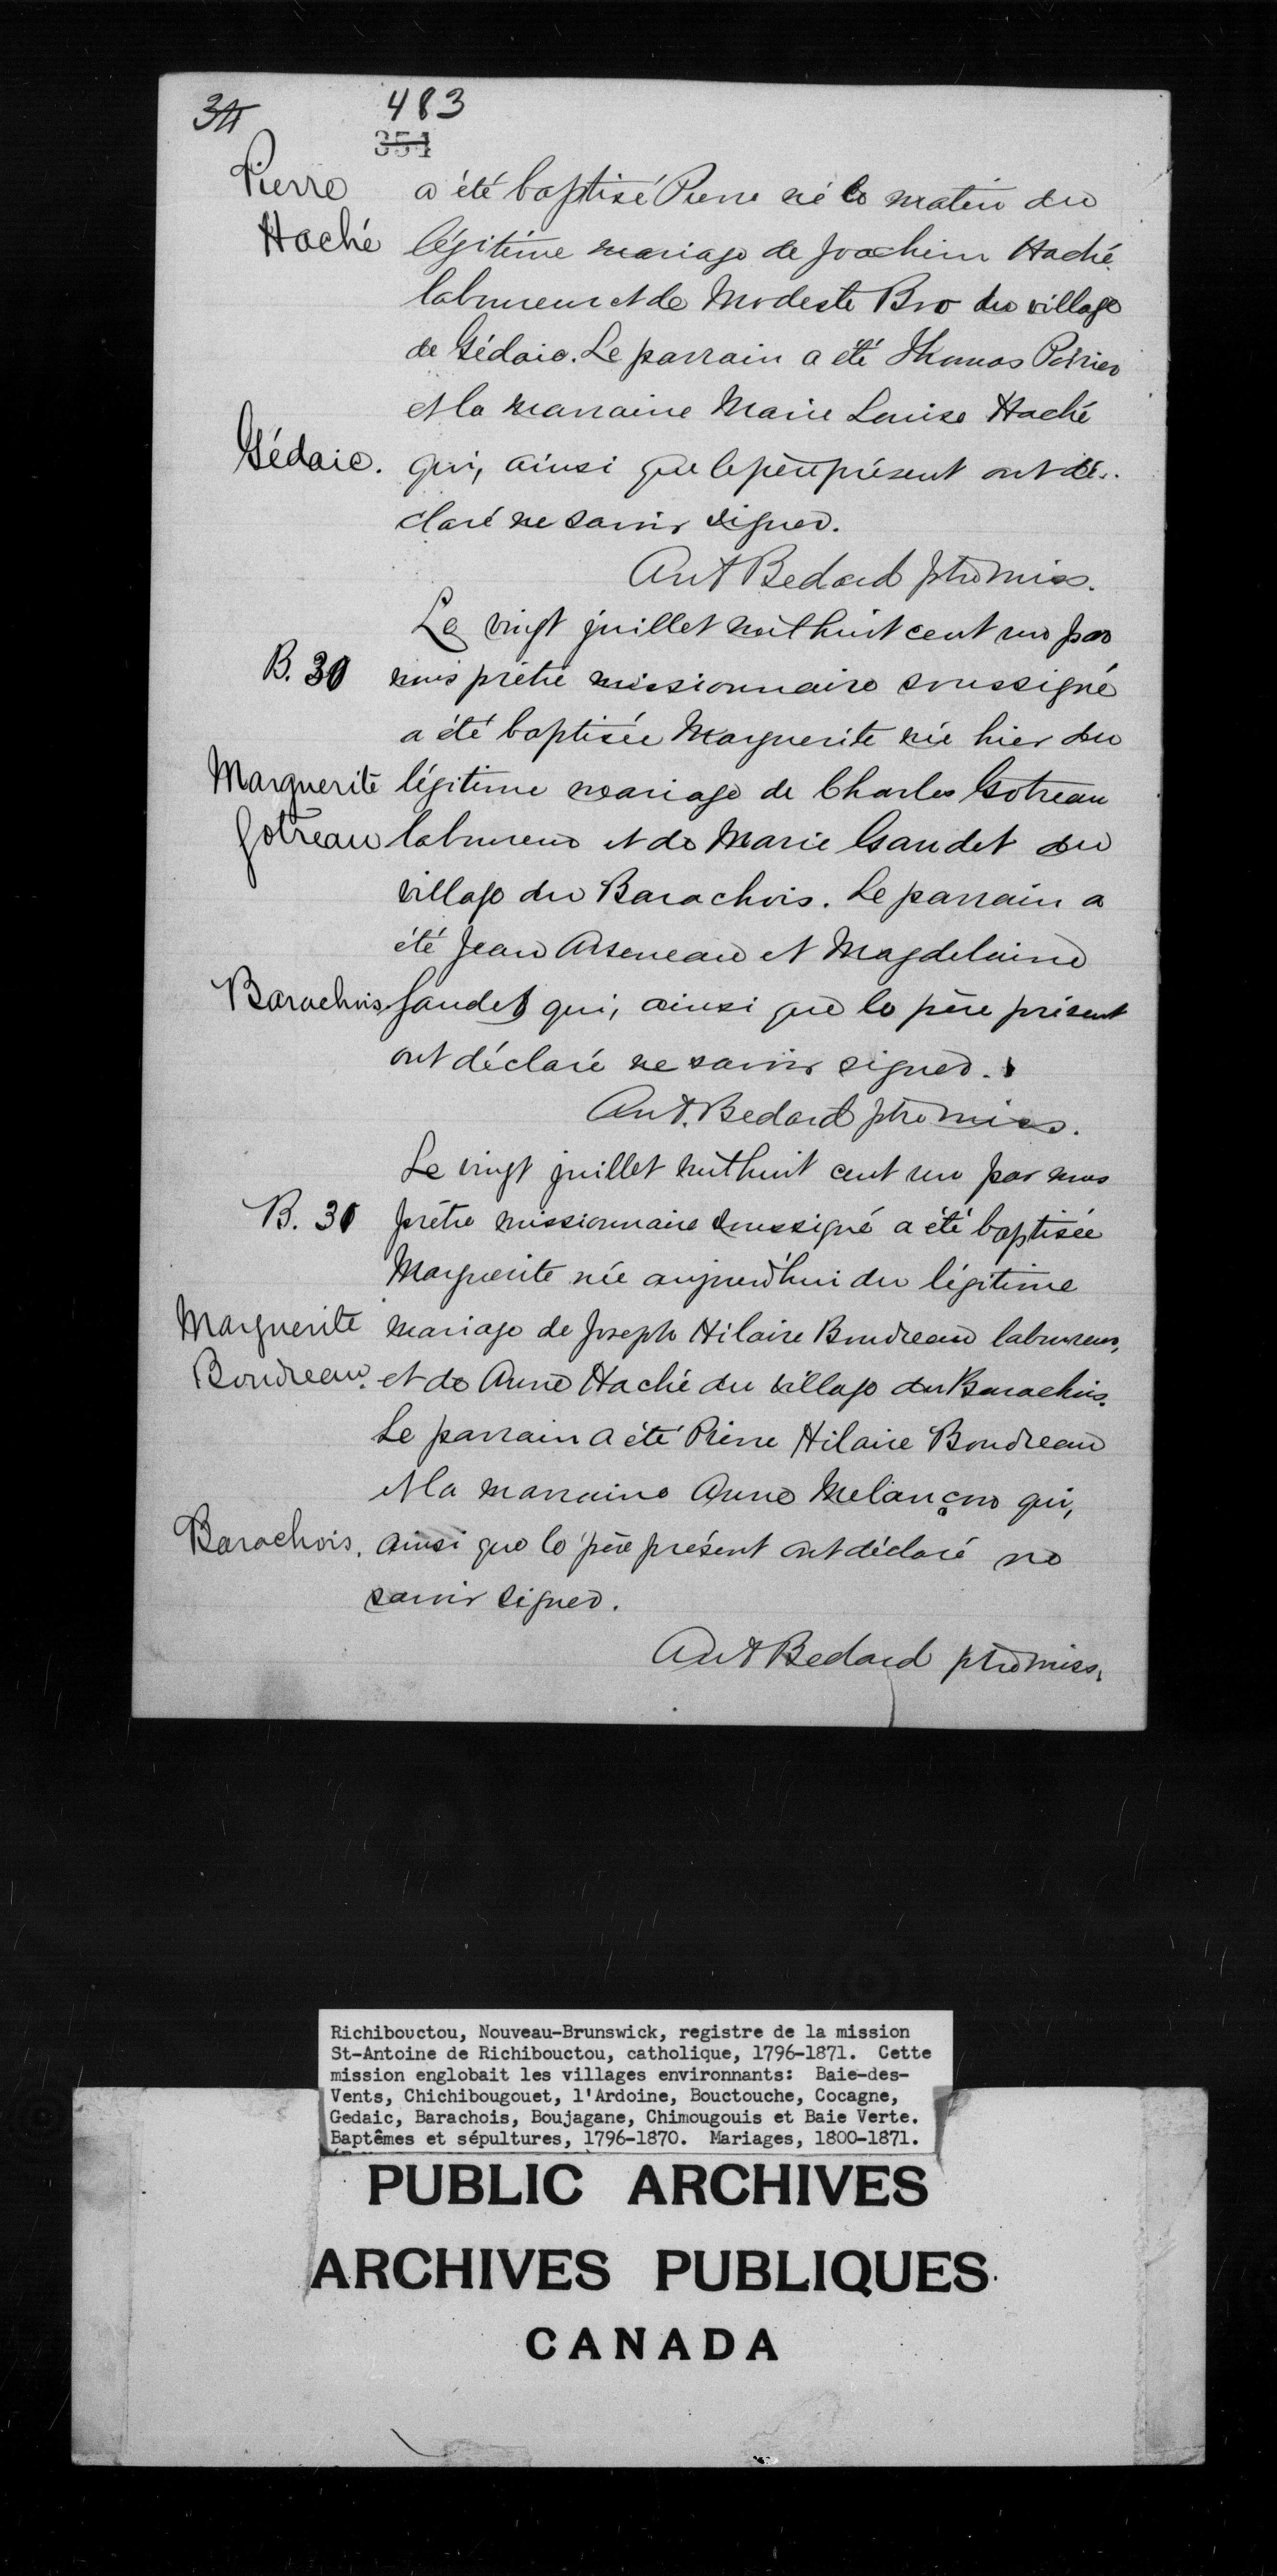 483
351
Pierre
Haché
a été baptisé Pierre né le matin du
légitime mariage de Joachim Haché
laboureur et de Modeste Bro du village
de Gédaic. Le parrain a été Thomas Poirier
et la marraine Marie Louise Haché
Gédaic.
qui, ainsi que le père présent ont dé-
claré ne savoir signer.
Ant Bedard ptre miss.
Le vingt juillet mil huit cent un par
B. 30
nous prêtre missionnaire soussigné
a été baptisée Marguerite née hier du
Marguerite
Gotreau
légitime mariage de Charles Gotreau
laboureur et de Marie Gaudet du
village du Barachois. Le parrain a
été Jean Arseneau et Magdelaine
Barachois
Gaudet qui, ainsi que le père présent
ont déclaré ne savoir signer.
Ant. Bedard ptre miss.
Le vingt juillet mil huit cent un par nous
B. 31
prêtre missionnaire soussigné a été baptisée
Marguerite née aujourd'hui du légitime
Marguerite
Boudreau.
mariage de Joseph Hilaire Boudreau laboureur,
et de Anne Haché du village du Barachois.
Le parrain a été Pierre Hilaire Boudreau
et la marraine Anne Melançon qui,
Barachois.
ainsi que le père présent ont déclaré ne
savoir signer.
Ant Bedard ptre miss.
Richibouctou, Nouveau-Brunswick, registre de la mission
St-Antoine de Richibouctou, catholique, 1796-1871. Cette
mission englobait les villages environnants: Baie-des-
Vents, Chichibougouet, l'Ardoine, Bouctouche, Cocagne,
Gedaic, Barachois, Boujagane, Chimougouis et Baie Verte.
Baptêmes et sépultures, 1796-1870. Mariages, 1800-1871.
PUBLIC ARCHIVES
ARCHIVES PUBLIQUES
CANADA